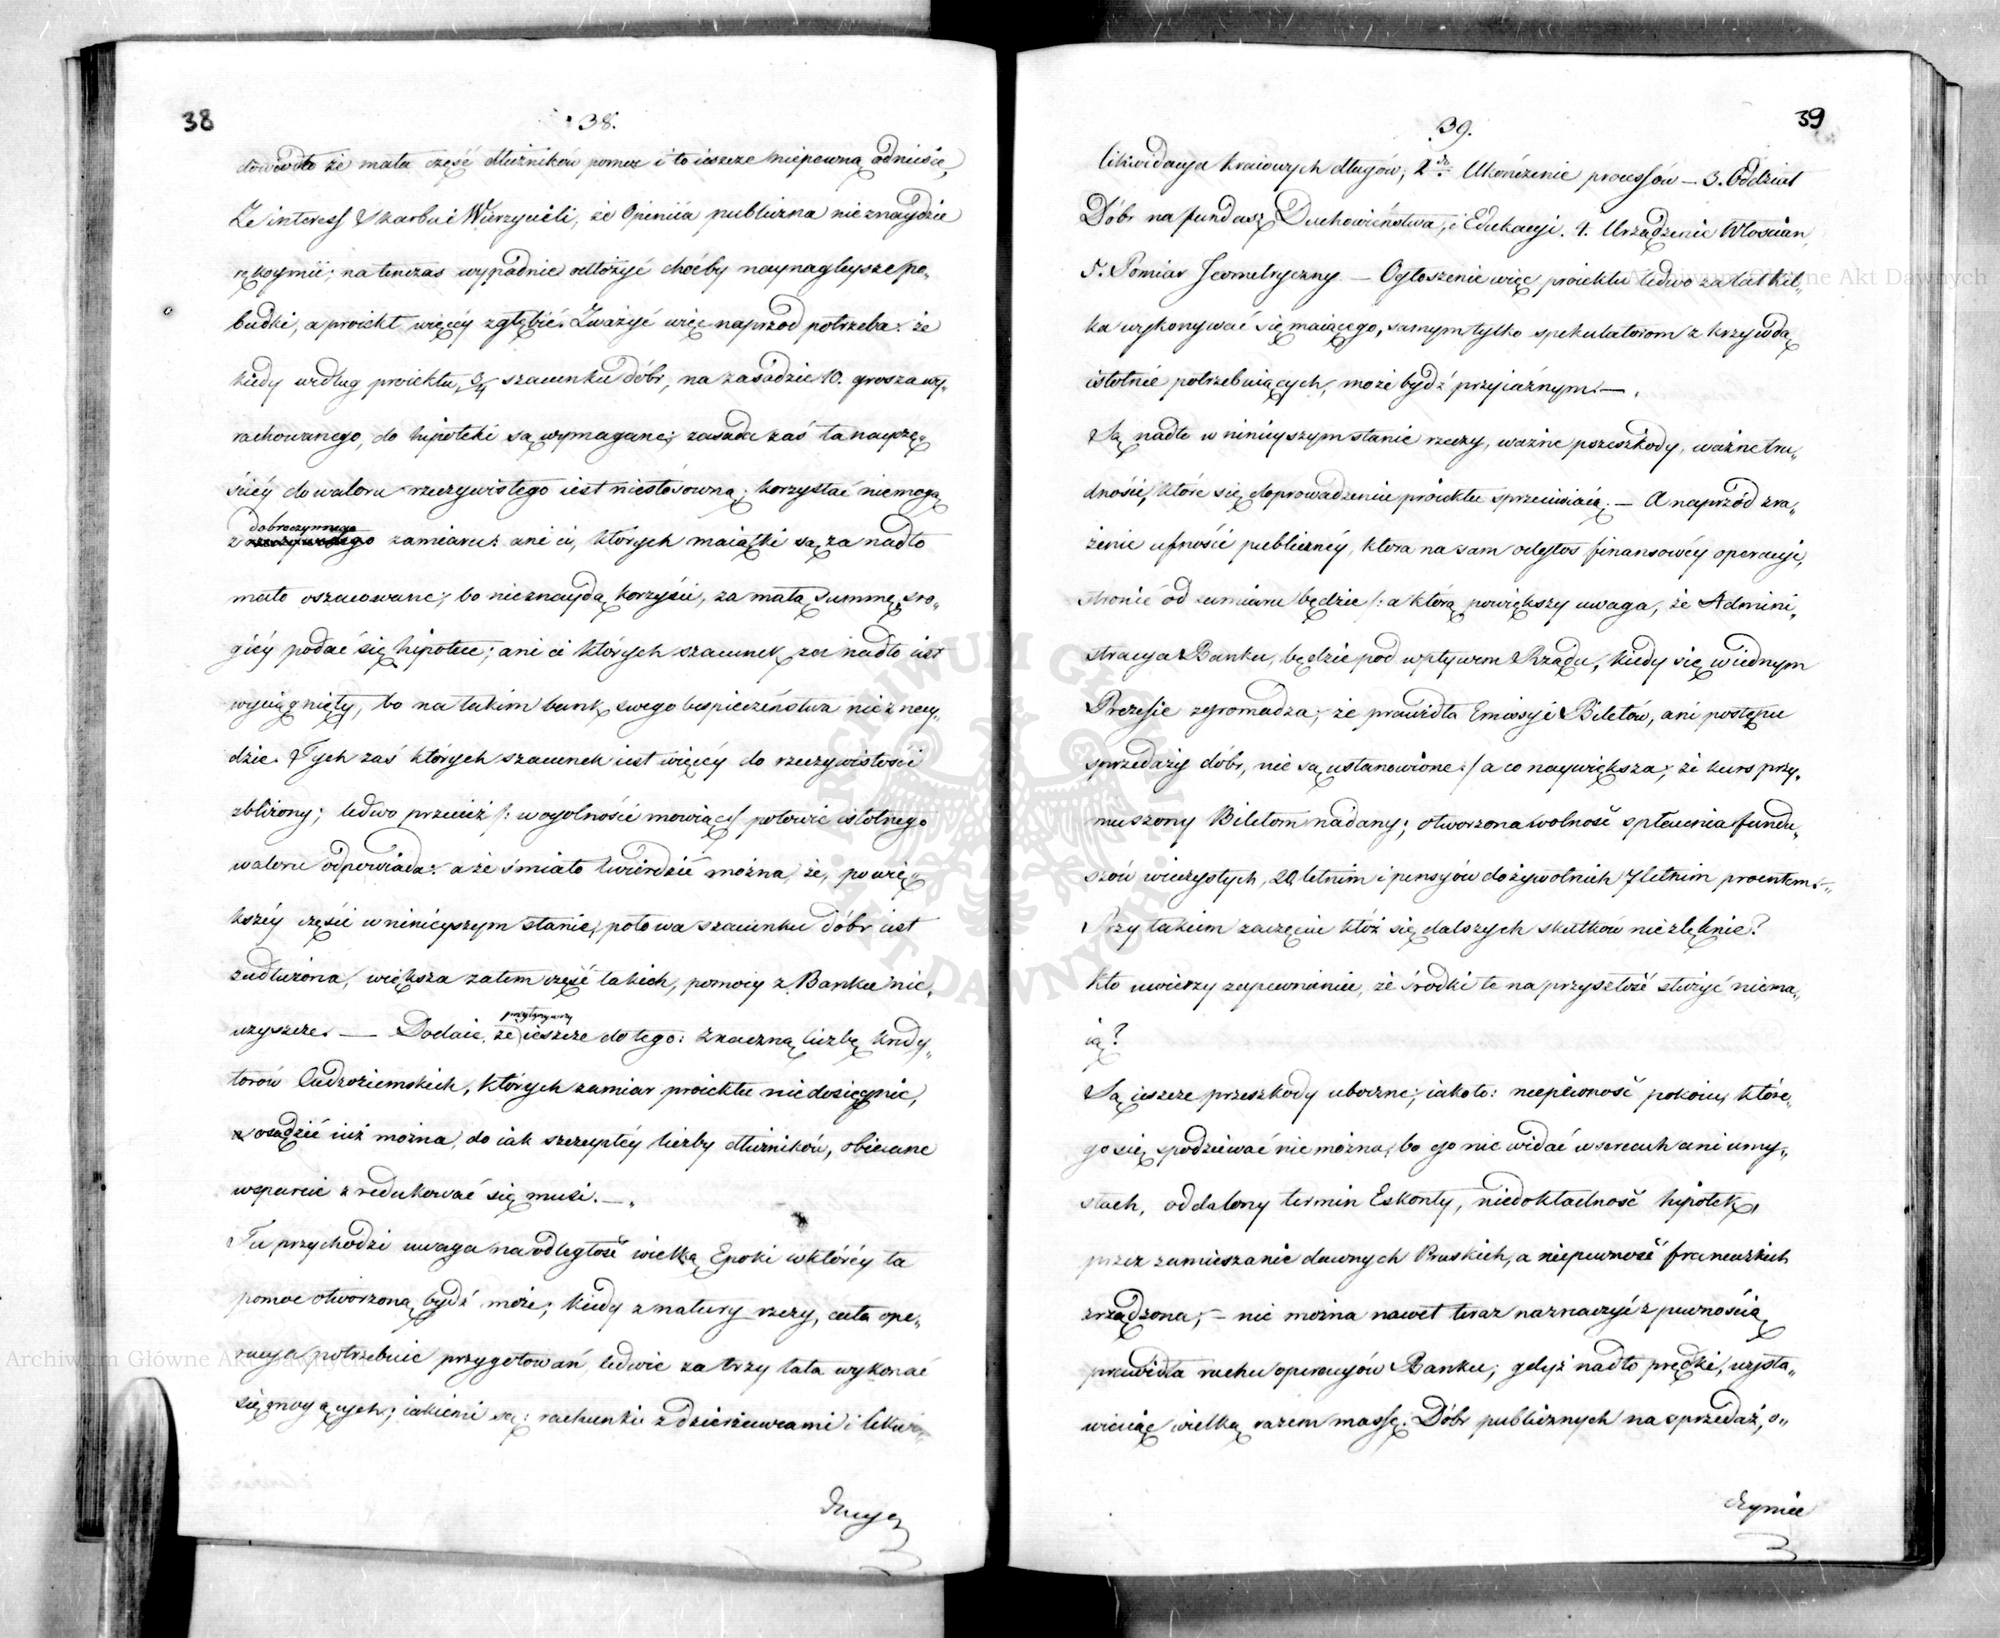 38
38.
dowiodło że mała część dłużników pomoc i to ieszcze niepewną odniesie,
Ze interess Skarbu i Wierzycieli, że Opiniia publiczna nieznaydzie
rękoymii; na tenczas wypadnie odłożyć choćby naynagleysze po„
budki, a proiekt więcéy zgłębić. Zważyć więc naprzód potrzeba: że
kiedy według proiektu, 3/4 szacunku dóbr, na zasadzie 10. grosza wy„
rachowanego, do hipoteki są wymagane; zasada zaś ta nayczę„
ściéy do waloru rzeczywistego iest niestosowną; korzystać niemogą
dobroczynnego
z zamiaru: ani ci, których maiątki są za nadto
mało oszacowane; bo nieznaydą korzyści, za małą Summę, sro„
giéy podać się hipotece; ani ci których szacunek za nadto iest
wyciągnięty, bo na takim bank swego bespieczeństwa nieznay„
dzie. Tych zaś których szacunek iest więcéy do rzeczywistości
zbliżony; ledwo przecież /: w ogolności mowiąc :/ połowie istotnego
waloru odpowiada: a że śmiało twierdzić można, że, po wię„
kszéy części w ninieyszym stanie, połowa szacunku dóbr iest
zadłużona, większa zatem część takich, pomocy z Banku nie„
uzyszcze. — Dodaie, że ieszcze do tego: znaczną liczbę kredy„
torów Cudzoziemskich, których zamiar proiektu niedosięgnie,
osądzić iuż można, do iak szczupłéy liczby dłużników, obiecane
wsparcie zredukować się musi. —.
Tu przychodzi uwaga na odległość wielką Epoki w któréy ta
pomoc otworzoną bydź może; kiedy z natury rzeczy, cała ope„
racya potrzebuie przygotowań, ledwie za trzy lata wykonać
się mogących; iakiemi są: rachunki z dzierżawcami i likwi„
39
39.
likwidacya kraiowych długów, 2re Ukończenie processów — 3. Oddział
Dóbr na fundusz Duchowieństwa, i Edukacyi. 4. Urządzenie Włościan,
5. Pomiar Jeometryczny. — Ogłoszenie więc proiektu ledwo za lat kil„
ka wykonywać się maiącego, samym tylko spekulatorom z krzywdą
istotnie potrzebuiących, może bydź przyiaznym. —.
Są nadto w ninieyszym stanie rzeczy, ważne przeszkody, ważne tru„
dności, które się doprowadzeniu proiektu sprzeciwiaią. — A naprzód zra„
żenie ufności publicznéy, ktora na sam odgłos finansowéy operacyi,
stronić od zamiaru będzie /: a którą powiększy uwaga, że Admini„
stracya Banku, będzie pod wpływem Rządu, kiedy się w iednym
Prezesie zgromadza; że prawidła Emissyi Biletów, ani postępu
sprzedaży dóbr, nie są ustanowione :/ a co naywiększa; że kurs przy„
muszony Biletom nadany; otworzona wolność spłacenia fundu„
szów wieczystych, 20 letnim i pensyów dożywotnich 7 letnim procentem. —
Przy takiem zaczęciu któż się dalszych skutków niezlęknie?
kto uwierzy zapewnieniu, że środki te na przyszłość służyć niema„
ią?
Są ieszcze przeszkody uboczne; iako to: niepewność pokoiu, które„
go się spodziewać nie można, bo go nie widać w sercach ani umy„
słach, oddalony termin Eskonty, niedokładność hipotek,
przez zamieszanie dawnych Pruskich, a niepewność francuzkich
zrządzona; — nie można nawet teraz naznaczyć z pewnością
prawidła ruchu operacyów Banku; gdyż nadto prędki, wysta„
wuiąc wielką razem massę Dóbr publicznych na sprzedaż, o„
czynie
Archiwum Główne Akt Dawnych
Archiwum Główne Akt Dawnych
ARCHIWUM GŁÓWNE AKT DAWNYCH